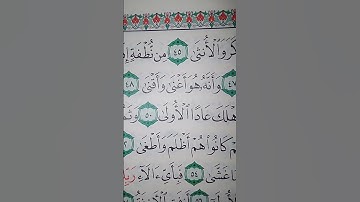 كَرَ وَٱلْأُنثَىٰ ٤٥ مِن نُّطْفَةٍ
٤٧ وَأَنَّهُۥ هُوَ أَغْنَىٰ وَأَقْنَىٰ ٤٨
هْلَكَ عَادًا ٱلْأُولَىٰ ٥٠ وَثَمُ
مْ كَانُوا۟ هُمْ أَظْلَمَ وَأَطْغَىٰ
مَا غَشَّىٰ ٥٤ فَبِأَىِّ ءَالَآءِ رَبِّكَ